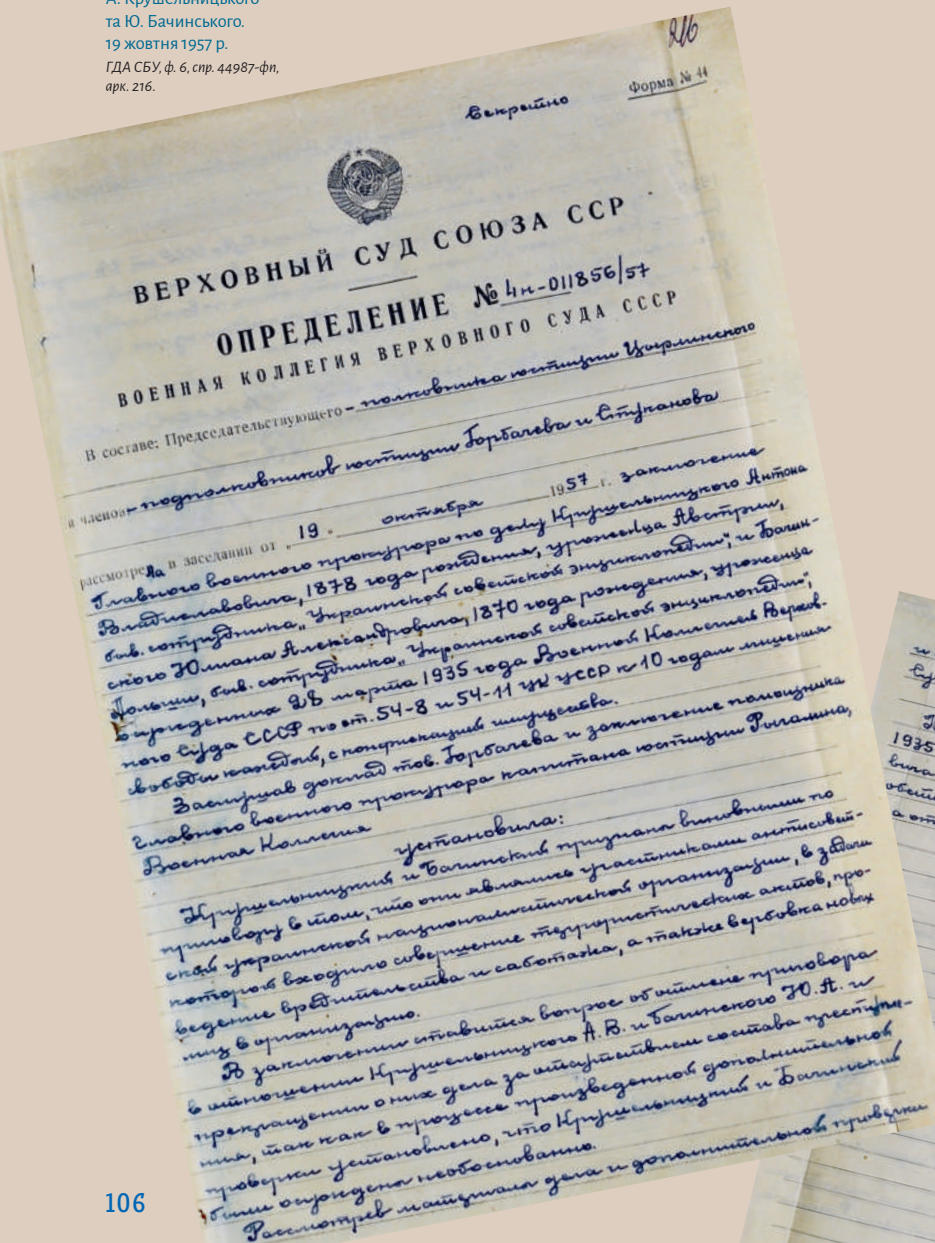 А. Крушельницького
та Ю. Бачинського.
19 жовтня 1957 р.
ГДА СБУ, ф. 6, спр. 44987-фп,
арк. 216.
216
Секретно
Форма № 44
ВЕРХОВНЫЙ СУД СОЮЗА ССР
ОПРЕДЕЛЕНИЕ № 4н-011856/57
ВОЕННАЯ КОЛЛЕГИЯ ВЕРХОВНОГО СУДА СССР
В составе: Председательствующего – полковника юстиции Цырлинского
и членов – подполковников юстиции Горбачева и Стуканова
рассмотрела в заседании от „19“ октября 1957 г. заключение
Главного военного прокурора по делу Крушельницкого Антона
Владиславовича, 1878 года рождения, уроженца Австрии,
быв. сотрудника „Украинской советской энциклопедии“, и Бачин-
ского Юлиана Александровича, 1870 года рождения, уроженца
Польши, быв. сотрудника „Украинской советской энциклопедии“,
осужденных 28 марта 1935 года Военной Коллегией Верхов-
ного Суда СССР по ст. 54-8 и 54-11 УК УССР к 10 годам лишения
свободы каждый, с конфискацией имущества.
Заслушав доклад тов. Горбачева и заключение помощника
Главного военного прокурора капитана юстиции Рыгалина,
Военная Коллегия
установила:
Крушельницкий и Бачинский признаны виновными по
приговору в том, что они являлись участниками антисовет-
ской украинской националистической организации, в задачи
которой входило совершение террористических актов, про-
ведение вредительства и саботажа, а также вербовка новых
лиц в организацию.
В заключении ставится вопрос об отмене приговора
в отношении Крушельницкого А.В. и Бачинского Ю.А. и
прекращении о них дела за отсутствием состава преступле-
ния, так как в процессе произведенной дополнительной
проверки установлено, что Крушельницкий и Бачинский
были осуждены необоснованно.
Рассмотрев материалы дела и дополнительной проверки
1935
106